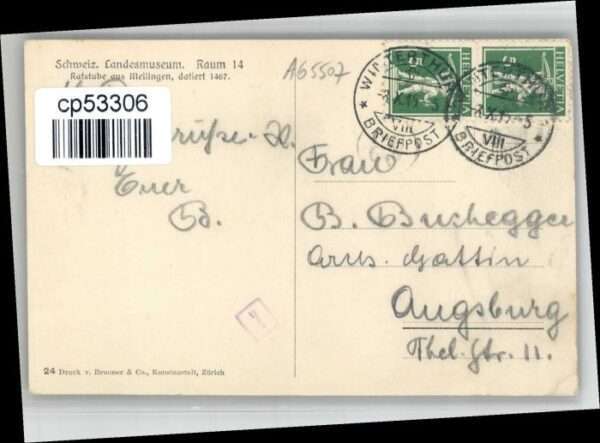 Schweiz. Landesmuseum. Raum 14
Ratstube aus Mellingen, datiert 1467.
A65507
cp53306
Euer
B.
24 Druck v. Brunner & Co., Kunstanstalt, Zürich
5
HELVETIA
5
HELVETIA
WINTERTHUR
VIII
BRIEFPOST
WINTERTHUR
VIII
BRIEFPOST
Frau
B. Buchegger
Gattin
Augsburg
Thel. Str. 11.